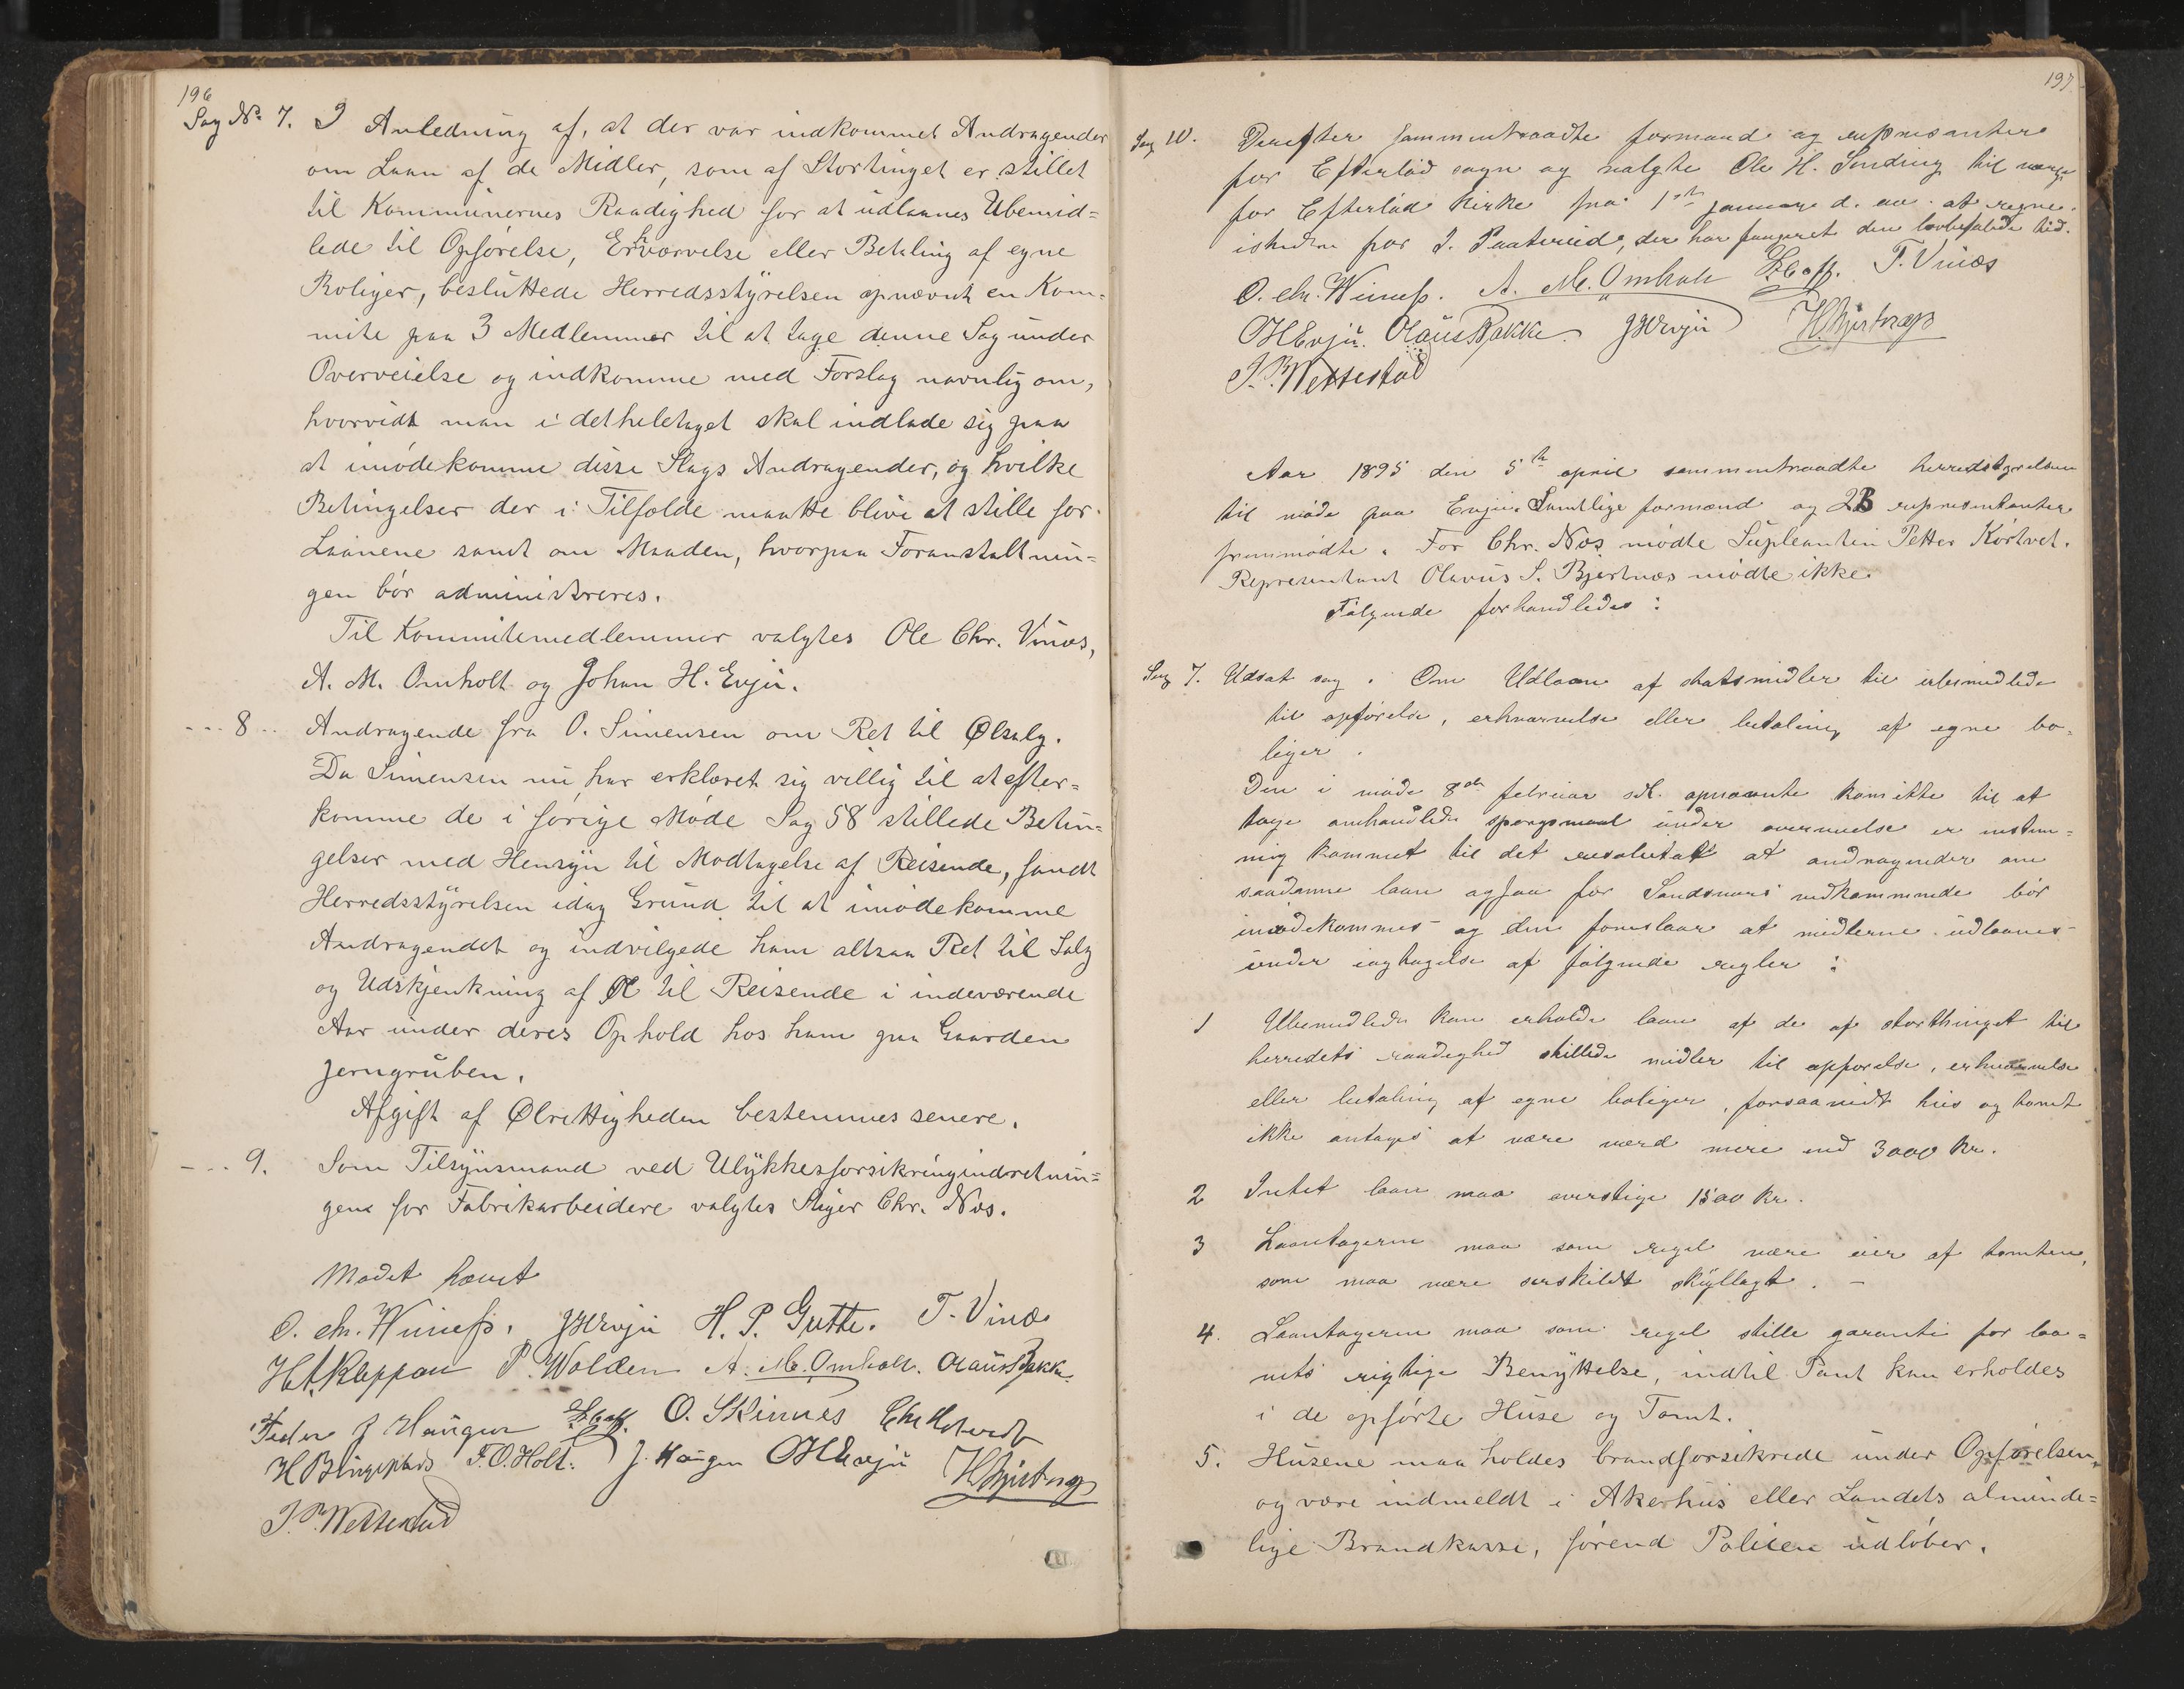 196
Sag No 7. I Anledning af, at der var indkommet Andragender
om Laan af de Midler, som af Stortinget er stillet
til Kommunernes Raadighed for at udlaanes Ubemid=
lede til Opførelse, Erhværvelse eller Betaling af egne
Boliger, besluttede Herredsstyrelsen opnævnt en Kom=
mite paa 3 Medlemmer til at tage denne Sag under
Overveielse og indkomme med Forslag navnlig om,
hvorvidt man i detheletaget skal indlade sig paa
at imødekomme disse Slags Andragender, og hvilke
Betingelser der i Tilfælde maatte blive at stille for
Laanene samt om Maaden, hvorpaa Foranstaltnin=
gen bør administreres.
Til Kommitemedlemmer valgtes Ole Chr. Vinæs,
A. M. Omholt og Johan H. Evju.
--- 8 -- Andragende fra O. Simensen om Ret til Ølsalg.
Da Simensen nu har erklæret sig villig til at efter=
komme de i forige Møde Sag 58 stillede Betin=
gelser med Hensyn til Modtagelse af Reisende, fandt
Herredsstyrelsen idag Grund til at imødekomme
Andragendet og indvilgede ham altsaa Ret til Salg
og Udskjenkning af Øl til Reisende i indeværende
Aar under deres Ophold hos ham paa Gaarden
Jerngruben.
Afgift af Ølrettigheden bestemmes senere.
--- 9. Som Tilsynsmand ved Ulykkesforsikringindretnin=
gene for Fabrikarbeidere valgtes Stiger Chr. Næs.
Mødet hævet
O. Chr. Winness. JHEvju H. P. Gutte. T. Vinæs
H A Kleppan P. Wolden A. M. Omholt. Olaus Bakke
Peder J Haugen O. Skinnes
F. O. Holt. J. Haugen OHEvju H Bjertnæs
J. P. Wettestad
197.
Sag 10. Derefter sammentraadte formænd og repræsenter
for Efteløt sogn og valgte Ole H. Sending til værge
for Efteløt Kirke fra 1ste januar d. aa. at regne
istedenfor J. Paaterud, der har fungeret den lovbefalede tid.
O. Chr. Winness. A. M. Omholt T. Vinæs
OHEvju. Olaus Bakke JHEvju H Bjertnæs
J. P. Wettestad
Aar 1895 den 5te april sammentraadte herredstyrelsen
til møde paa Evju. Samtlige formænd og 23 repræsentanter
fremmødte. For Chr. Næs mødte Supleanten Petter Kørtvet.
Representant Olavus S. Bjertnæs mødte ikke.
Følgende forhandledes:
Sag 7. Udsat sag. Om Udlaan af statsmidler til ubemidlede
til opførelse, erhværvelse eller betaling af egne bo=
liger.
Den i møde 8de februar sdl. opnævnte komitte til at
tage omhandlede spørgsmaal under overveielse er enstem=
mig kommet til det resolutat at andragender om
saadanne laan ogsaa for Sandsværs vedkommende bør
imødekommes og den foreslaar at midlerne udlaanes
under iagtagelse af følgende regler:
1 Ubemidlede kan erholde laan af de af storthinget til
herredets raadighed stillede midler til opførelse, erhværvelse
eller betaling af egne boliger, forsaavidt hus og tomt
ikke antages at være værd mere end 3000 kr.
2 Intet laan maa overstige 1500 kr.
3 Laantageren maa som regel være eier af tomten,
som maa være særskildt skyllagt. -
4. Laantageren maa som regel stille garanti for laa=
nets rigtige Benyttelse, indtil Pant kan erholdes
i de opførte Huse og Tomt.
5. Husene maa holdes brandforsikrede under Opførelsen,
og være indmeldt i Akerhus eller Landets alminde=
lige Brandkasse, førend Polisen udløber.